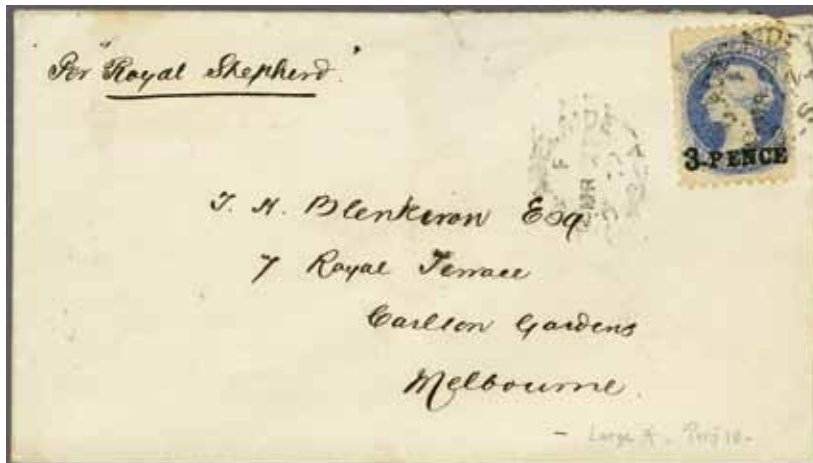 Per "Royal Shepherd"
3-PENCE
T. H. Blenkiron Esq
7 Royal Terrace
Carlton Gardens
Melbourne.
- Large * - Perf 10 -